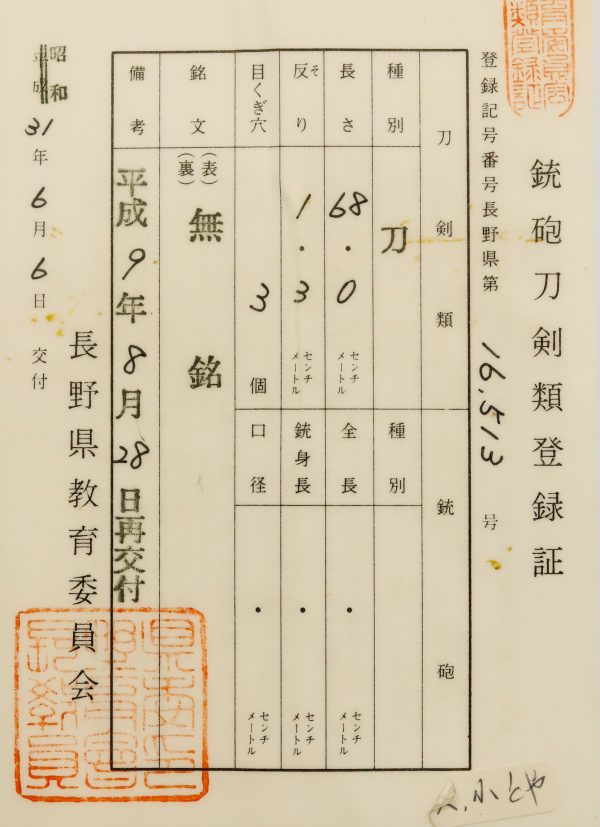 銃砲刀剣類登録証
登録記号番号長野県第 16,513 号
刀剣類
銃砲
種別 刀
種別
長さ 68.0 センチメートル
全長 ・ センチメートル
反り 1.3 センチメートル
そ
銃身長 ・ センチメートル
目くぎ穴 3 個
口径 ・ センチメートル
銘文 (表) 無銘
(裏)
備考 平成9年8月28日再交付
長野県教育委員会
昭和
平成
31年6月6日 交付